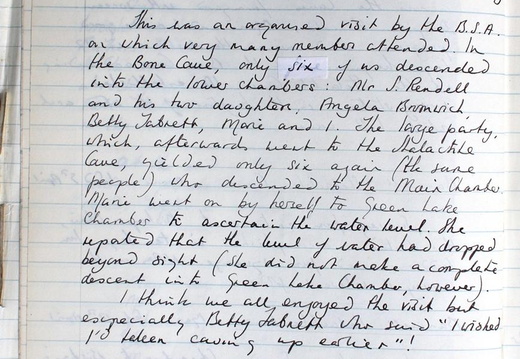 This was an organised visit by the B.S.A.
on which very many member attended. In
the Bone Cave, only six of us descended
into the lower chambers: Mr S. Pendell
and his two daughter, Angela Bromwich,
Betty Jabrett, Marie and I. The large party,
which, afterwards went to the Stalactite
Cave, yielded only six again (the same
people) who descended to the Main Chamber.
Marie went on by herself to Green Lake
Chamber to ascertain the water level. She
reported that the level of water had dropped
beyond sight (she did not make a complete
descent into Green Lake Chamber, however).
I think we all enjoyed the visit but
especially Betty Jabrett who said "I wished
I'd taken caving up earlier"!